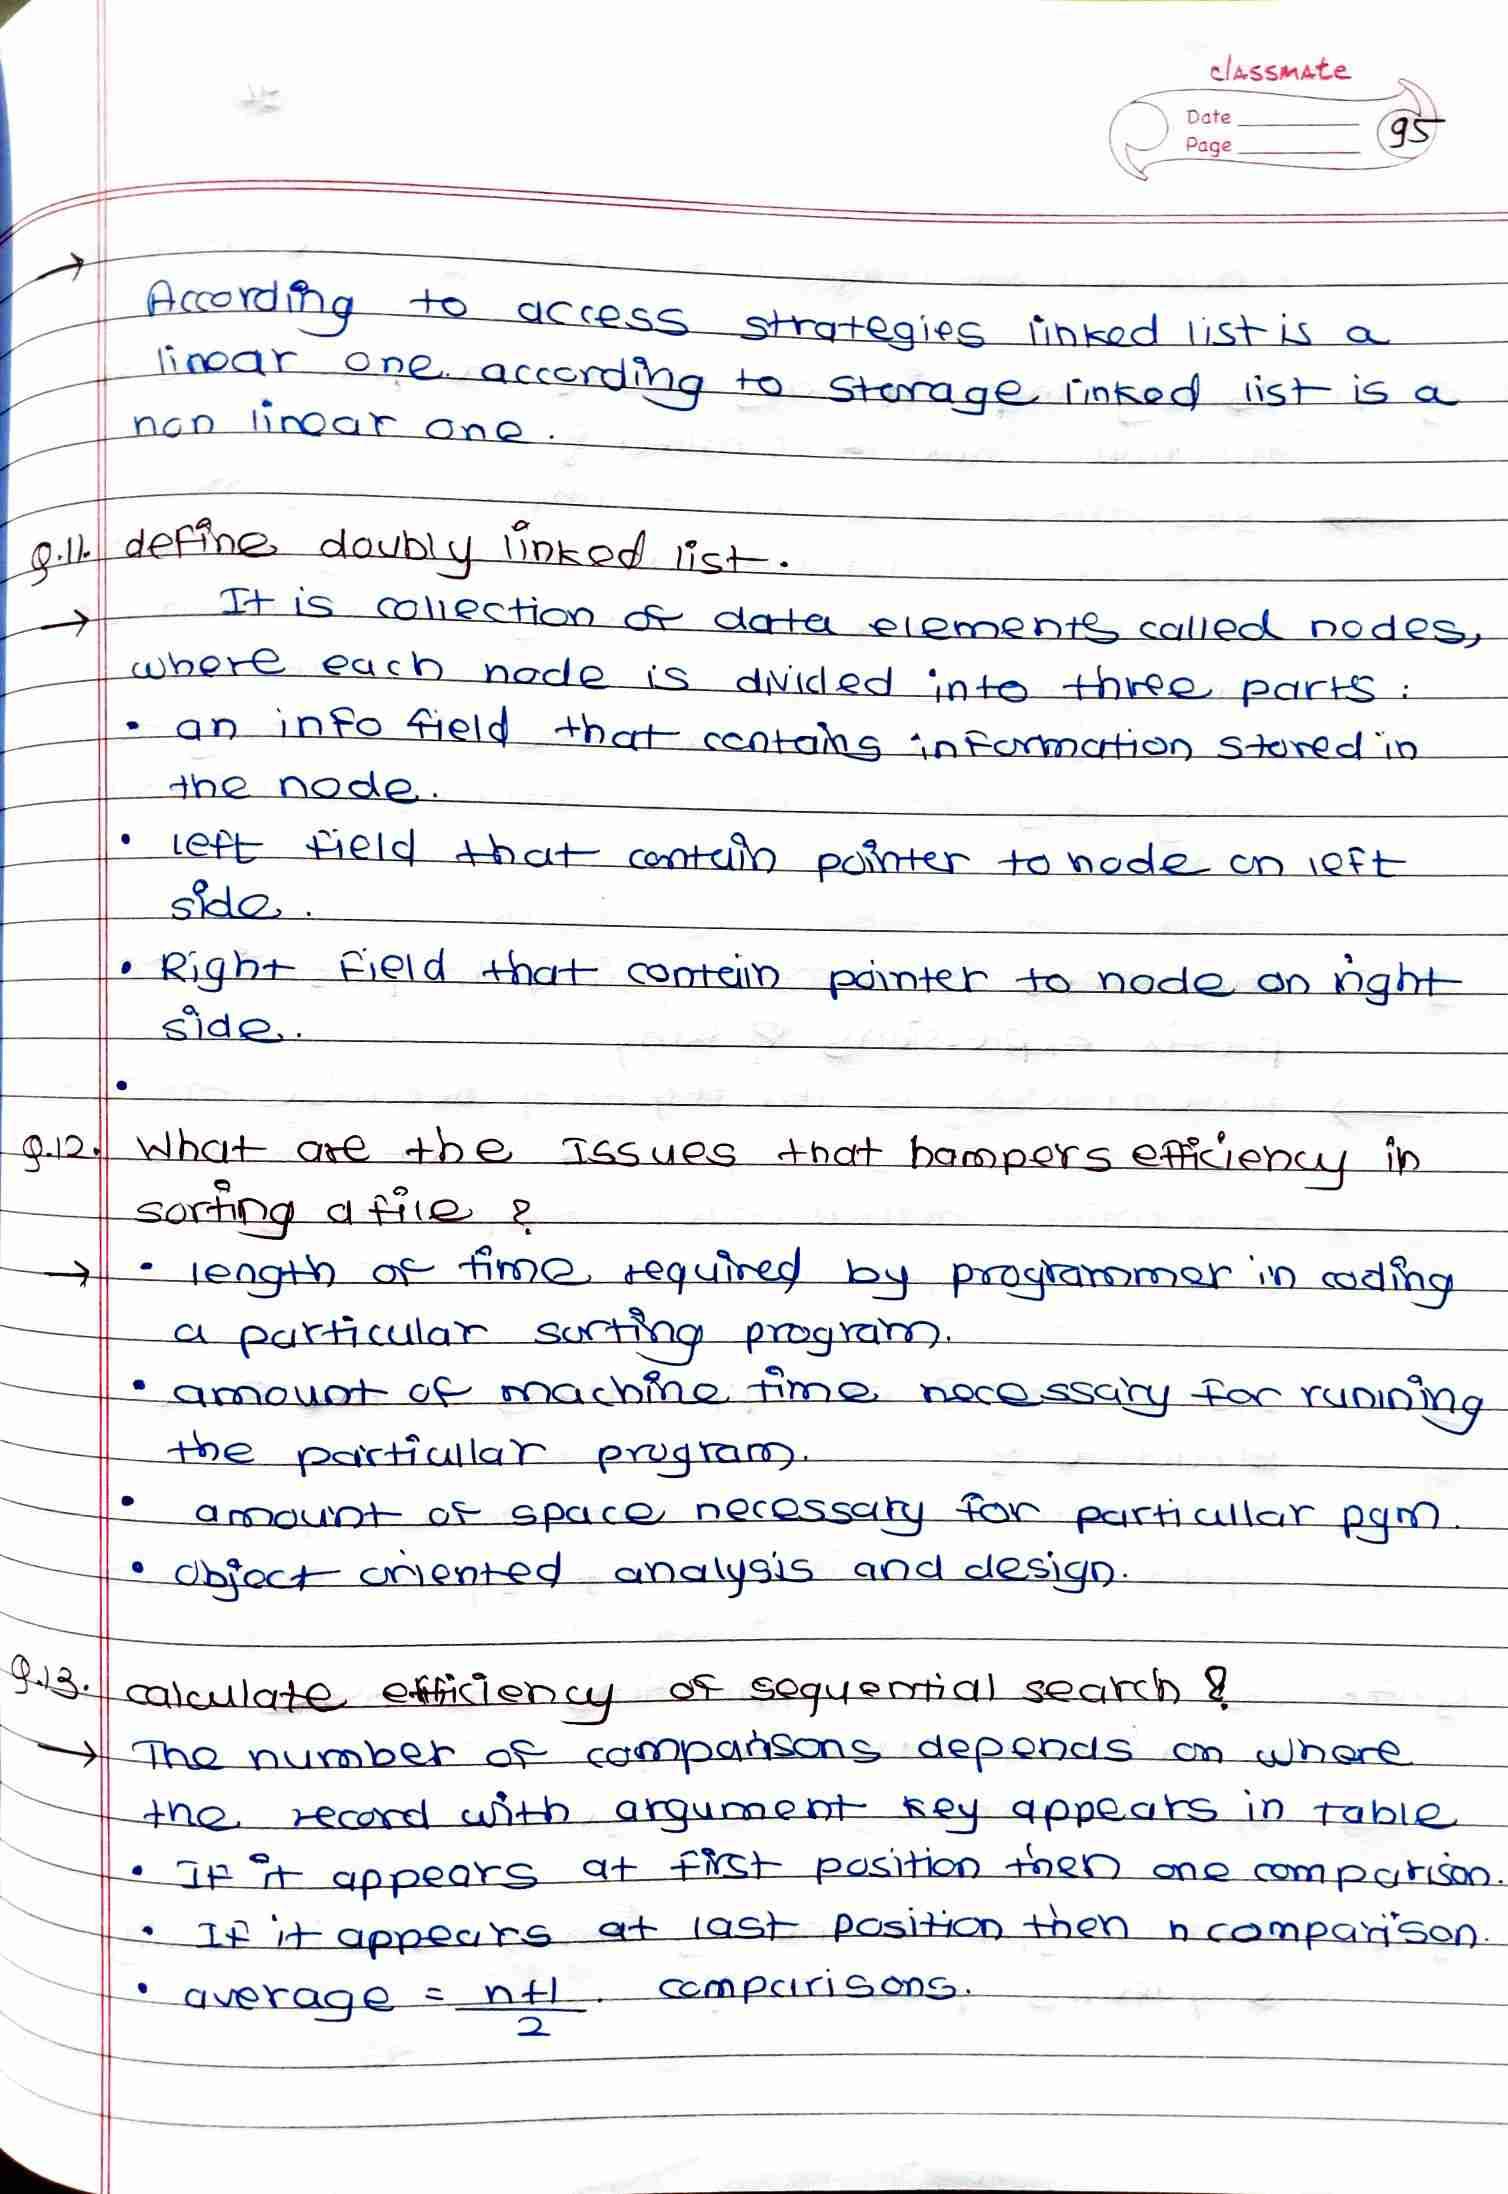 classmate
Date
Page
95
→ According to access strategies linked list is a
linear one. according to storage linked list is a
non linear one.
Q.11. define doubly linked list.
→ It is collection of data elements called nodes,
where each node is divided into three parts:
• an info field that contains information stored in
the node.
• left field that contain pointer to node on left
side.
• Right field that contain pointer to node on right
side.
•
Q.12. What are the Issues that hampers efficiency in
sorting a file?
→ • length of time required by programmer in coding
a particular sorting program.
• amount of machine time necessary for running
the particullar program.
• amount of space necessary for particullar pgm.
• object oriented analysis and design.
Q.13. calculate efficiency of sequential search?
→ The number of comparisons depends on where
the record with argument key appears in table
• If it appears at first position then one comparison.
• If it appears at last position then n comparison.
• average = n+1 comparisons.
2